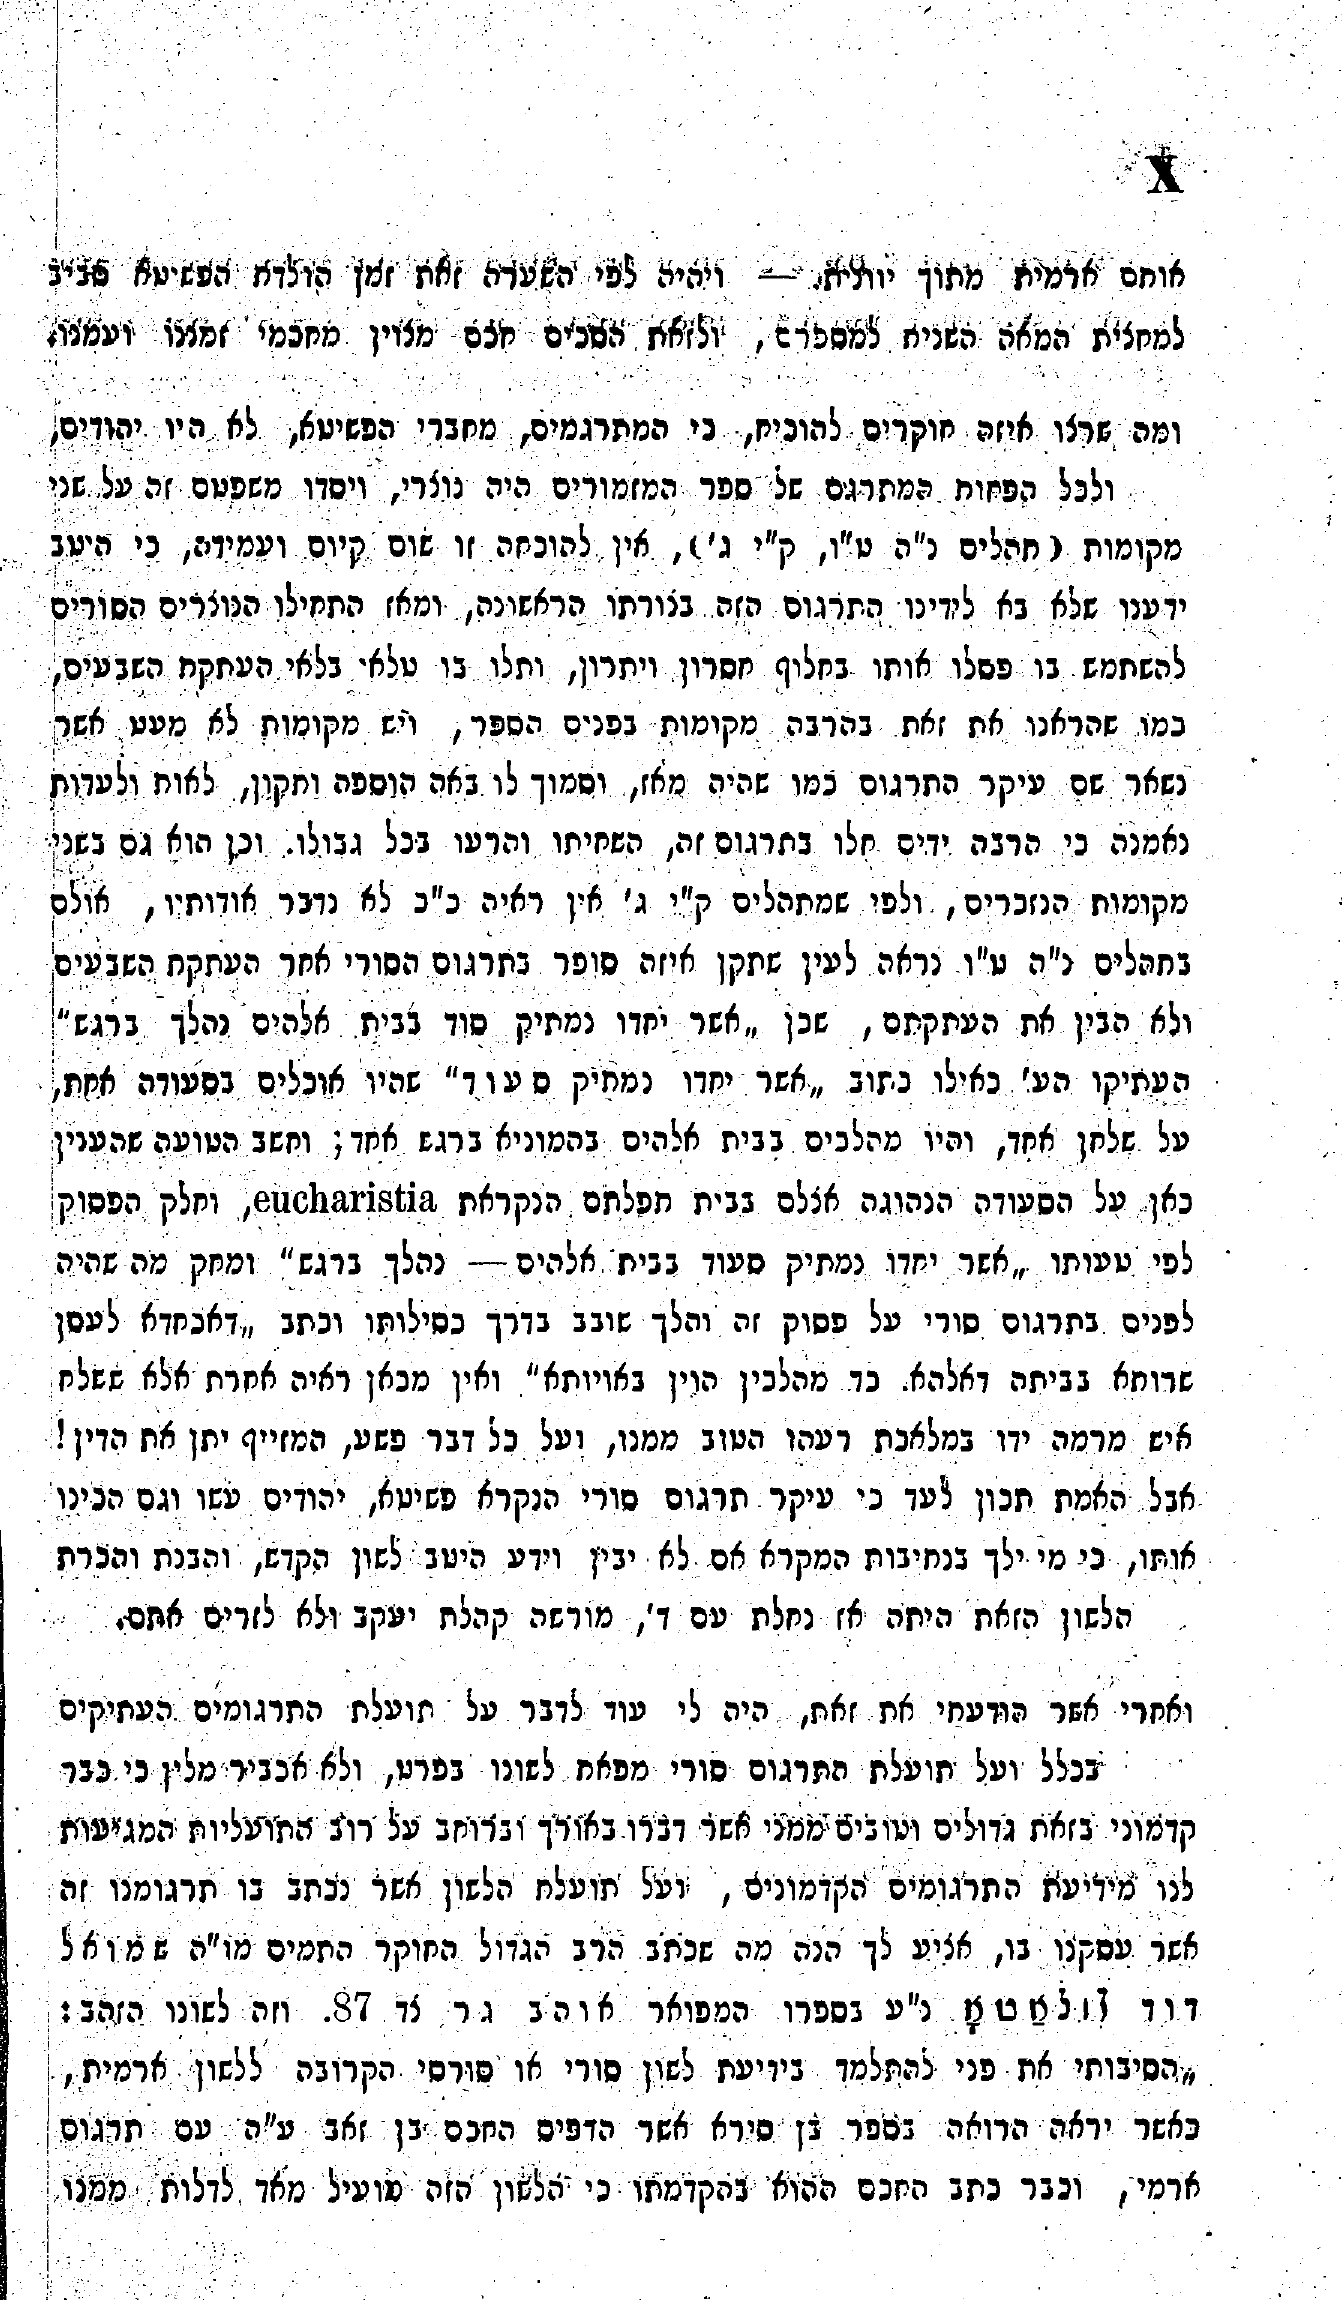 X
אותם ארמית מתוך יוונית. — ויהיה לפי השערה זאת זמן הולדת הפשיטא סביב
למחצית המאה השנית למספרם, ולזאת הסכים חכם מצוין מחכמי זמננו ועמנו.
ומה שרצו איזה חוקרים להוכיח, כי המתרגמים, מחברי הפשיטא, לא היו יהודים,
ולכל הפחות המתרגם של ספר המזמורים היה נוצרי, ויסדו משפטם זה על שני
מקומות (תהלים נ"ה ט"ו, ק"י ג'), אין להוכחה זו שום קיום ועמידה, כי היטב
ידענו שלא בא לידינו התרגום הזה בצורתו הראשונה, ומאז התחילו הנוצרים הסורים
להשתמש בו פסלו אותו בחלוף חסרון ויתרון, ותלו בו טלאי בלאי העתקת השבעים,
כמו שהראנו את זאת בהרבה מקומות בפנים הספר, ויש מקומות לא מעט אשר
נשאר שם עיקר התרגום כמו שהיה מאז, וסמוך לו באה הוספה ותקון, לאות ולעדות
נאמנה כי הרבה ידים חלו בתרגום זה, השחיתו והרעו בכל גבולו. וכן הוא גם בשני
מקומות הנזכרים, ולפי שמתהלים ק"י ג' אין ראיה כ"כ לא נדבר אודותיו, אולם
בתהלים נ"ה ט"ו נראה לעין שתקן איזה סופר בתרגום הסורי אחר העתקת השבעים
ולא הבין את העתקתם, שכן „אשר יחדו נמתיק סוד בבית אלהים נהלך ברגש“
העתיקו הע' כאילו כתוב „אשר יחדו נמתיק סעוד“ שהיו אוכלים בסעודה אחת,
על שלחן אחד, והיו מהלכים בבית אלהים בהמוניא ברגש אחד; וחשב הטועה שהענין
כאן על הסעודה הנהוגה אצלם בבית תפלתם הנקראת eucharistia, וחלק הפסוק
לפי טעותו „אשר יחדו נמתיק סעוד בבית אלהים — נהלך ברגש“ ומחק מה שהיה
לפנים בתרגום סורי על פסוק זה והלך שובב בדרך כסילותו וכתב „דאכחדא לעסן
שרותא בביתה דאלהא. כד מהלכין הוין באויותא“ ואין מכאן ראיה אחרת אלא ששלח
איש מרמה ידו במלאכת רעהו הטוב ממנו, ועל כל דבר פשע, המזייף יתן את הדין!
אבל האמת תכון לעד כי עיקר תרגום סורי הנקרא פשיטא, יהודים עשו וגם הכינו
אותו, כי מי ילך בנתיבות המקרא אם לא יבין וידע היטב לשון הקדש, והבנת והכרת
הלשון הזאת היתה אז נחלת עם ד', מורשה קהלת יעקב ולא לזרים אתם.
ואחרי אשר הודעתי את זאת, היה לי עוד לדבר על תועלת התרגומים העתיקים
בכלל ועל תועלת התרגום סורי מפאת לשונו בפרט, ולא אכביר מלין כי כבר
קדמוני בזאת גדולים וטובים ממני אשר דברו באורך וברוחב על רוב התועליות המגיעות
לנו מידיעת התרגומים הקדמונים, ועל תועלת הלשון אשר נכתב בו תרגומנו זה
אשר עסקנו בו, אציע לך הנה מה שכתב הרב הגדול החוקר התמים מו"ה שמואל
דוד לולאַטטאָ נ"ע בספרו המפואר אוהב גר צד 87. וזה לשונו הזהב:
„הסיבותי את פני להתלמד בידיעת לשון סורי או סורסי הקרובה ללשון ארמית,
כאשר יראה הרואה בספר בן סירא אשר הדפיס החכם בן זאב ע"ה עם תרגום
ארמי, וכבר כתב החכם ההוא בהקדמתו כי הלשון הזה מועיל מאד לדלות ממנו